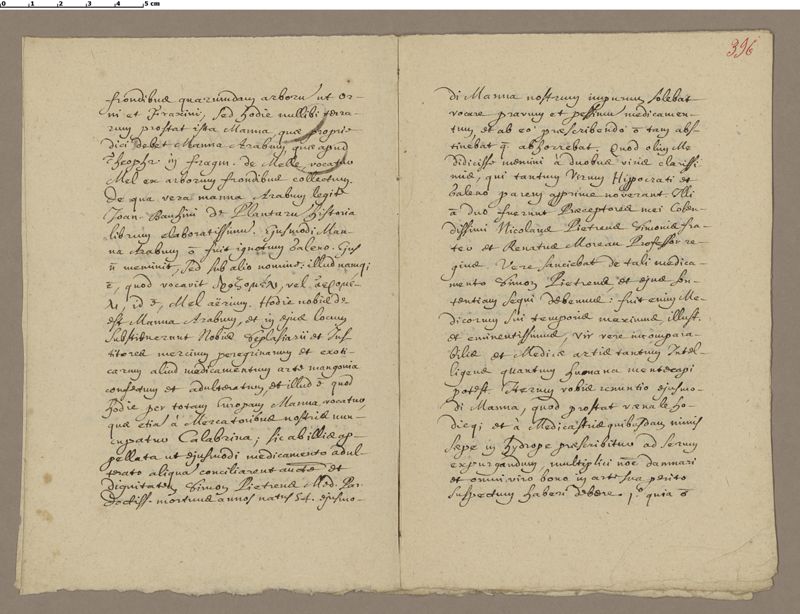 0 1 2 3 4 5 cm
396
frondibus quarumdam arborū ut or-
ni et Fraxini, sed hodie nullibi terra-
rum prostat ista Manna, quæ proprie
dici debet Manna Arabum, quæ apud
Theophr. in fragm. de Melle, vocatur
Mel ex arborum frondibus collectum.
De qua vera manna Arabum legite
Joan. Bauhini de Plantarū historia
librum elaboratissimum. Ejusmodi Man-
na Arabum ō fuit ignotum Galeno. Ejus
n̄ meminit, sed sub alio nomine: illud namq;
ē, quod vocavit vel
id ē, Mel aërium. Hodie nobis de-
est Manna Arabum, et in ejus locum
substituerunt Nobis Seplasiarii et Ins-
titores mercium peregrinarum et exoti-
carum aliud medicamentum arte mangonia
confectum et adulteratum, et illud ē quod
hodie per totam Europam Manna vocatur,
quæ etiā à Mercatoribus nostris nun-
cupatur Calabrina; sic ab illis ap-
pellata ut ejusmodi medicamento adul-
terato aliqua conciliarent aucte et
dignitatem Simon Pietreus Med. Par.
Doctiss. mortuus annos natus 54. ejusmo-
di Manna nostrum impurum solebat
vocare pravum et pessimū medicamen-
tum, et ab eo præscribendo ō tam abs-
tinebat q̄. abhorrebat. Quod olim Me
didicisse memini à duobus viris clarissi-
mis, qui tantum Virum Hippocrati et
Galeno parem apprime noverant. Illi
ā duo fuerunt Præceptores mei Colen-
dissimi Nicolaus Pietreus Simonis fra-
ter et Renatus Moreau Professor re-
gius. Vere sanciebat de tali medica-
mento Simon Pietreus et ejus sen-
tentiam sequi debemus: fuit enim Me-
dicorum sui temporis maximus, illust.
et eminentissimus, vir vere incompara-
bilis et Medicæ artis tantum Intel-
ligens quantum humana mente capi
potest. Iterum vobis renuntio ejusmo-
di Manna, quod prostat vænale ho-
dieq; et à Medicastris quibusdam nimis
sæpe in hydrope præscribitur ad serum
expurgandum, multiplici noe damnari
et omni viro bono in arte sua perito
suspectum haberi debere. 1.º quia ō